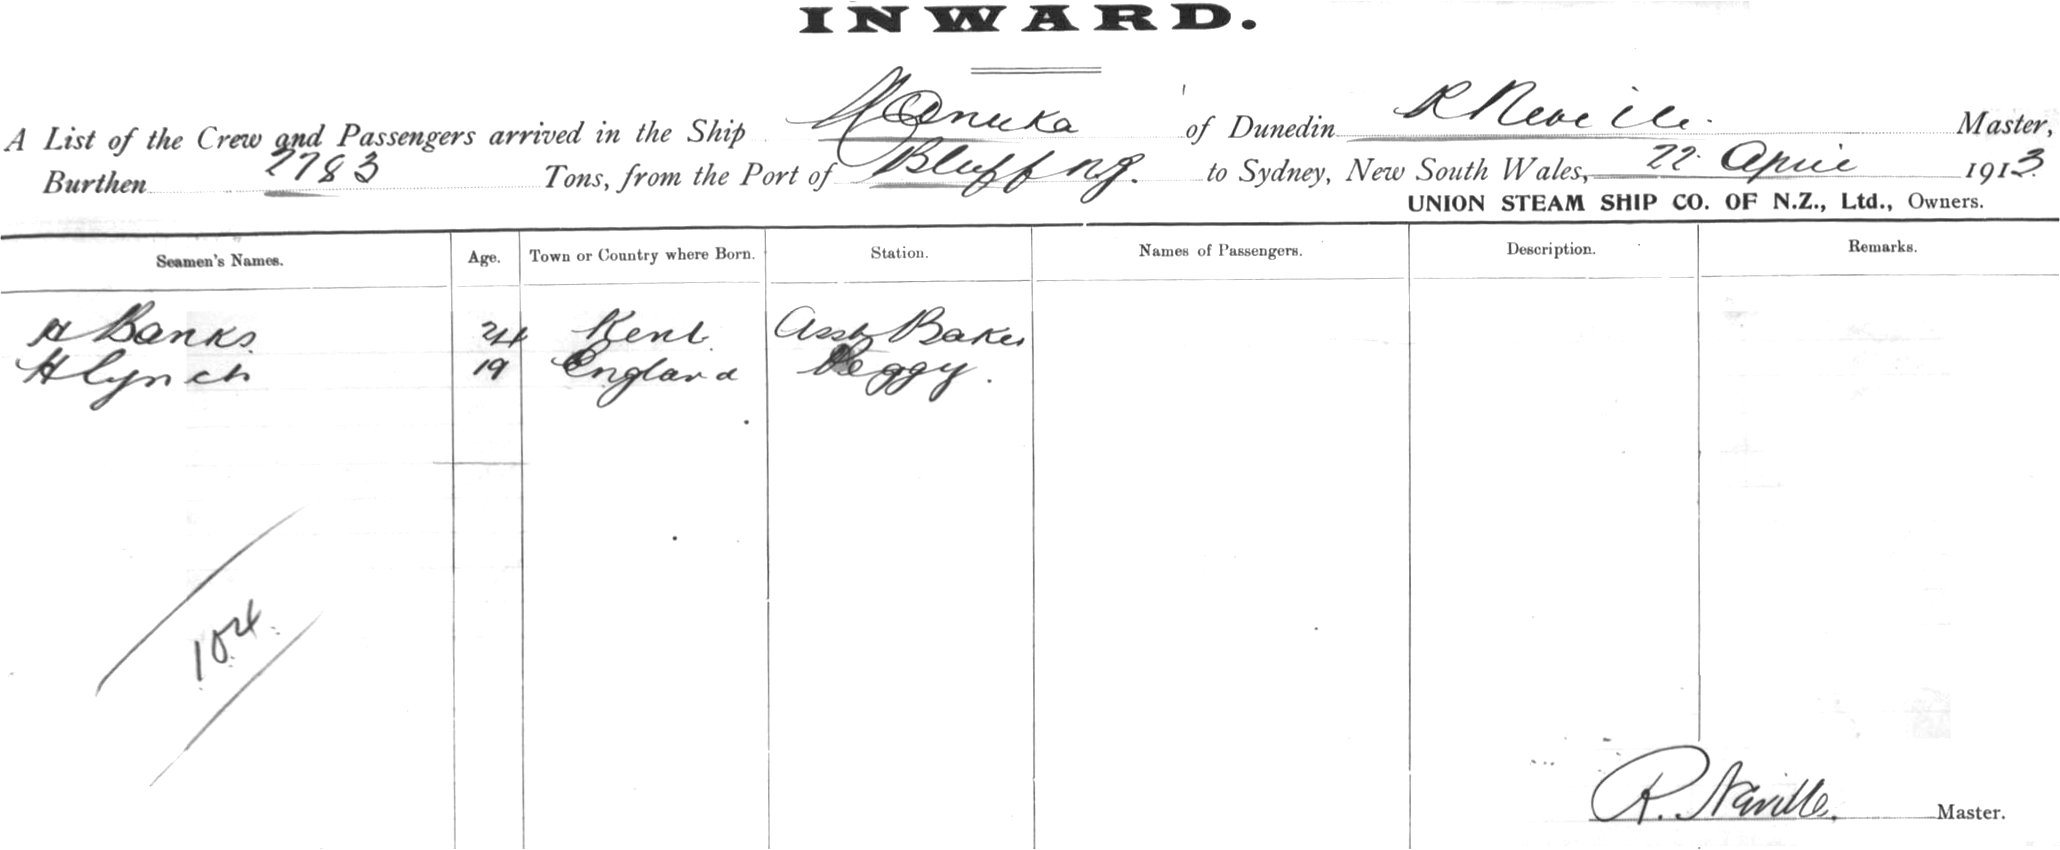 INWARD.
A List of the Crew and Passengers arrived in the Ship Manuka of Dunedin R Neville. Master,
Burthen 2783 Tons, from the Port of Bluff N.Z. to Sydney, New South Wales, 22 April 1913.
UNION STEAM SHIP CO. OF N.Z., Ltd., Owners.
Seamen's Names. Age. Town or Country where Born. Station. Names of Passengers. Description. Remarks.
H Banks 24 Kent Asst Baker
H Lynch 19 England Peggy.
104
R. Neville. Master.